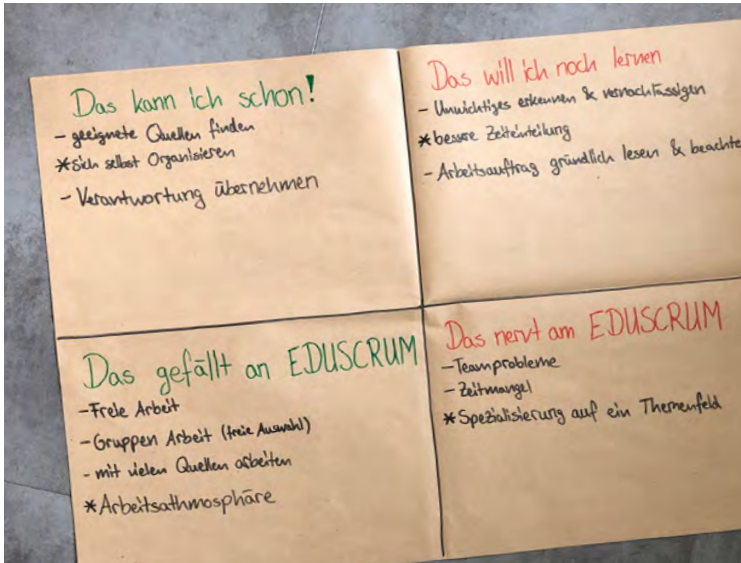 Das kann ich schon!
- geeignete Quellen finden
* sich selbst Organisieren
- Verantwortung übernehmen
Das will ich noch lernen
- Unwichtiges erkennen & vernachlässigen
* bessere Zeiteinteilung
- Arbeitsauftrag gründlich lesen & beachte
Das gefällt an EDUSCRUM
- Freie Arbeit
- Gruppen Arbeit (freie Auswahl)
- mit vielen Quellen arbeiten
* Arbeitsathmosphäre
Das nervt am EDUSCRUM
- Teamprobleme
- Zeitmangel
* Spezialisierung auf ein Themenfeld